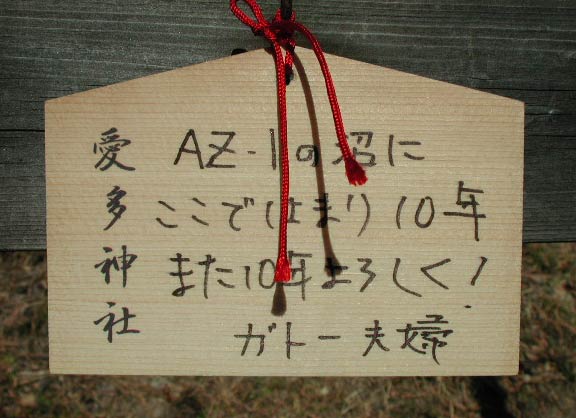 愛多神社
AZ-1の沼に
ここではまり10年
また10年よろしく!
ガトー夫婦